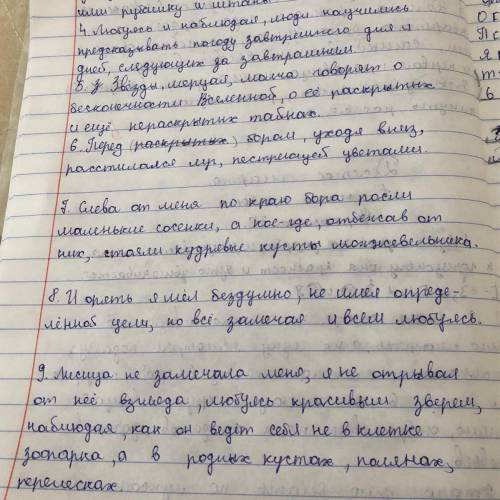 или рубашку и штаны
4. Любуясь и наблюдая, люди научились
предсказывать погоду завтрашнего дня и
дней, следующих за завтрашним.
5. Звёзды, мерцая, молча говорят о
бесконечности Вселенной, о её раскрытых
и ещё нераскрытых тайнах.
6. Перед (раскрытых) бором, уходя вниз,
расстилался луг, пестреющей цветами.
7. Слева от меня по краю бора росли
маленькие сосенки, а кое-где, отбежав от
них, стояли кудрявые кусты можжевельника.
8. И опять я шёл бездумно, не имея опреде-
лённой цели, но всё замечая и всем любуясь.
9. Лисица не замечала меня, я не отрывал
от неё взгляда, любуясь красивым зверем,
наблюдая, как он ведёт себя не в клетке
зоопарка, а в родных кустах, полянах,
перелесках.